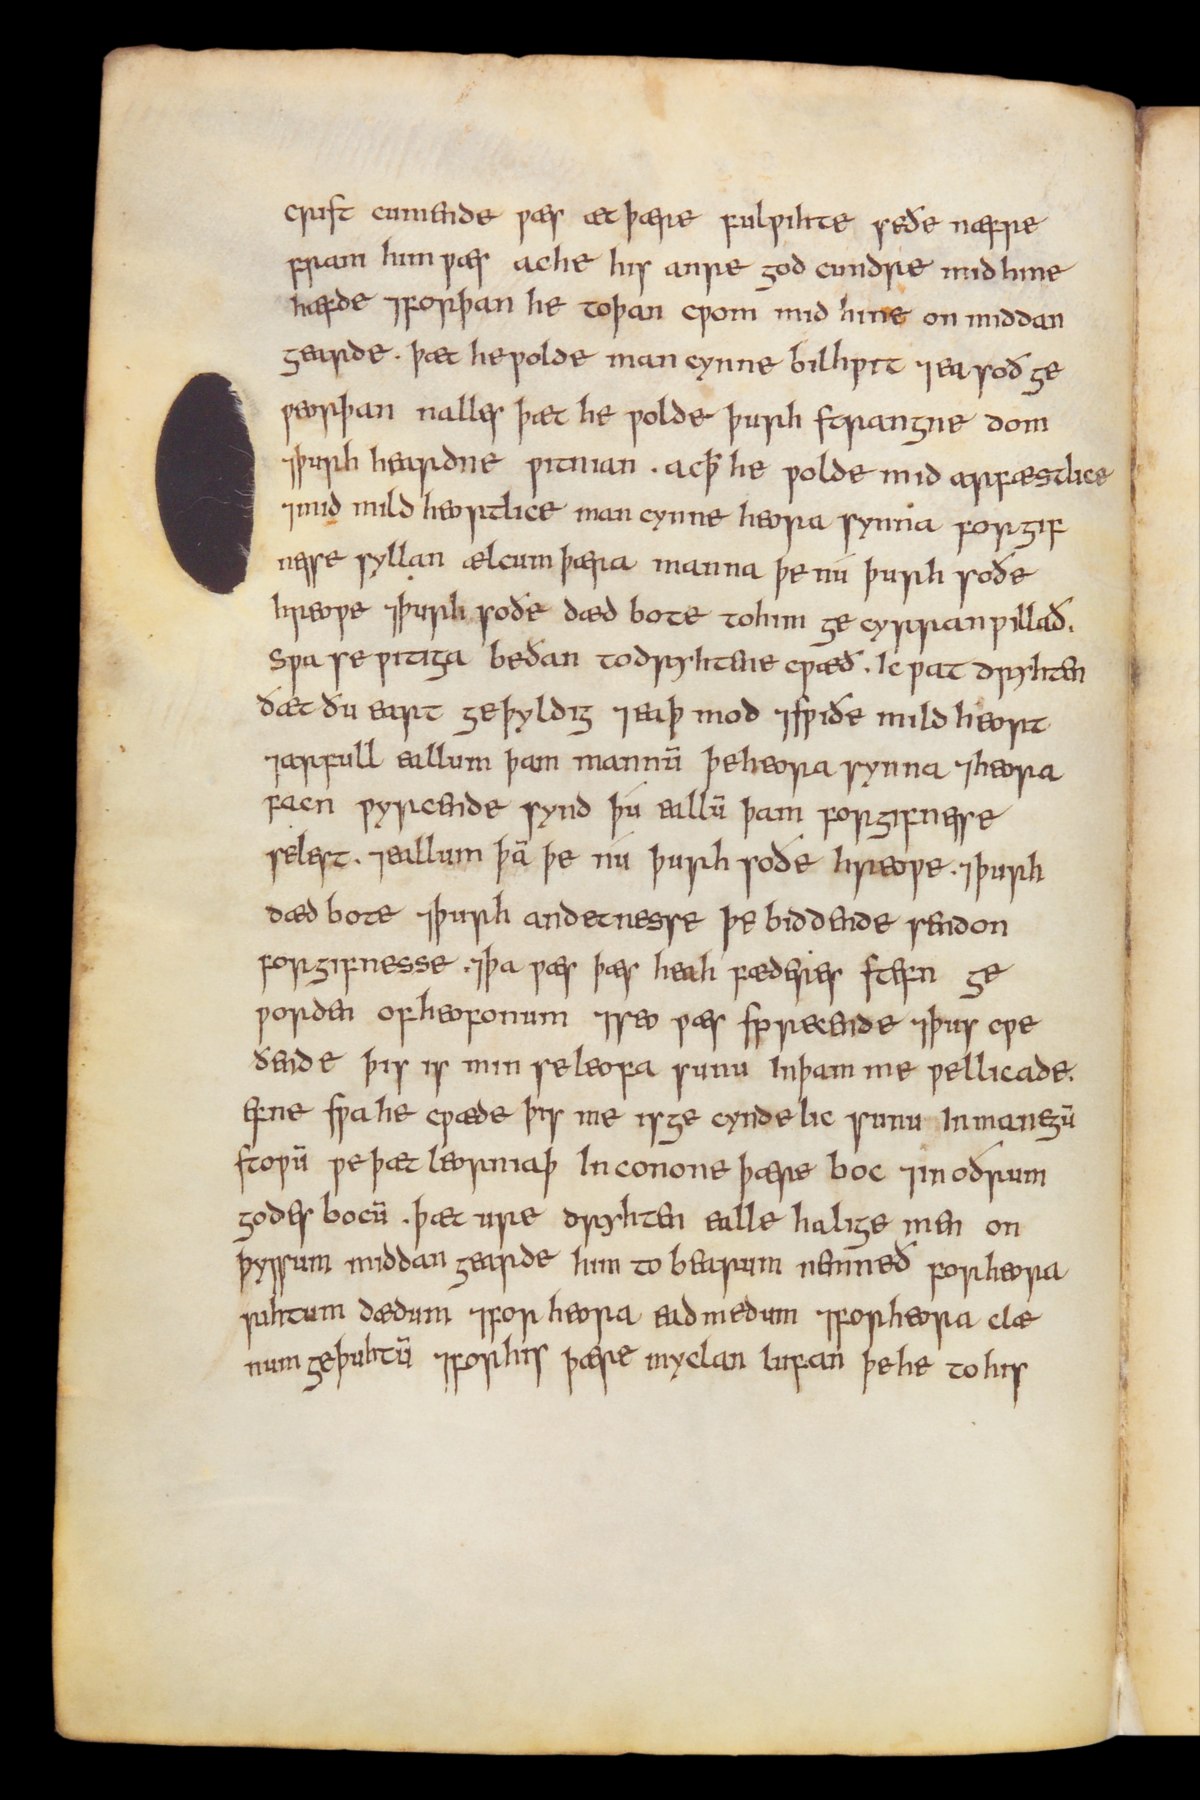 crist cumende ƿæs æt þære fulƿihte seðe næfre
fram him ƿæs ac he his anre god cundre mid hine
hæfde ⁊ forþan he to þan cƿom mid hine on middan
gearde · þæt he ƿolde man cynne bilhƿit ⁊ ea soð ge
ƿeorþan nalles þæt he ƿolde þurh strangne dom
⁊ þurh heardne ƿitnian · ac þ̄ he ƿolde mid arfæstlice
⁊ mid mild heortlice man cynne heora synna forgif
nesse syllan ælcum þæra manna þe nú þurh soðe
hreoƿe ⁊ þurh soðe dæd bote to him ge cyrran ƿillað.
Sƿa se ƿitiga beðan to dryhtene cƿæð · Ic ƿat dryhten
ðæt ðu eart geþyldig ⁊ eaþ mod ⁊ sƿiðe mild heort
⁊ arfull eallum þam mannū þe heora synna ⁊ heora
facn ƿyrcende synd þú eallū þam forgifnesse
selest · ⁊ eallum þā þe nú þurh soðe hreoƿe · ⁊ þurh
dæd bote ⁊ þurh andetnesse þe biddende sendon
forgifnesse · ⁊ þa ƿæs þæs heah fæderes stefn ge
ƿorden of heofonum ⁊ seo ƿæs sprecende ⁊ þus cƿe
ðende þis is min se leofa sunu In þam me ƿel licade.
efne sƿa he cƿæde þis me is ge cynde lic sunu In manegū
stoƿū ƿe þæt leorniaþ In conone þære boc ⁊ in oðrum
godes bocū · þæt ure dryhten ealle halige men on
þyssum middan gearde him to bearum nemneð for heora
rihtum dædum ⁊ for heora ead medum ⁊ for heora clæ
num geþuhtū ⁊ for his þære myclan lufan þe he to his